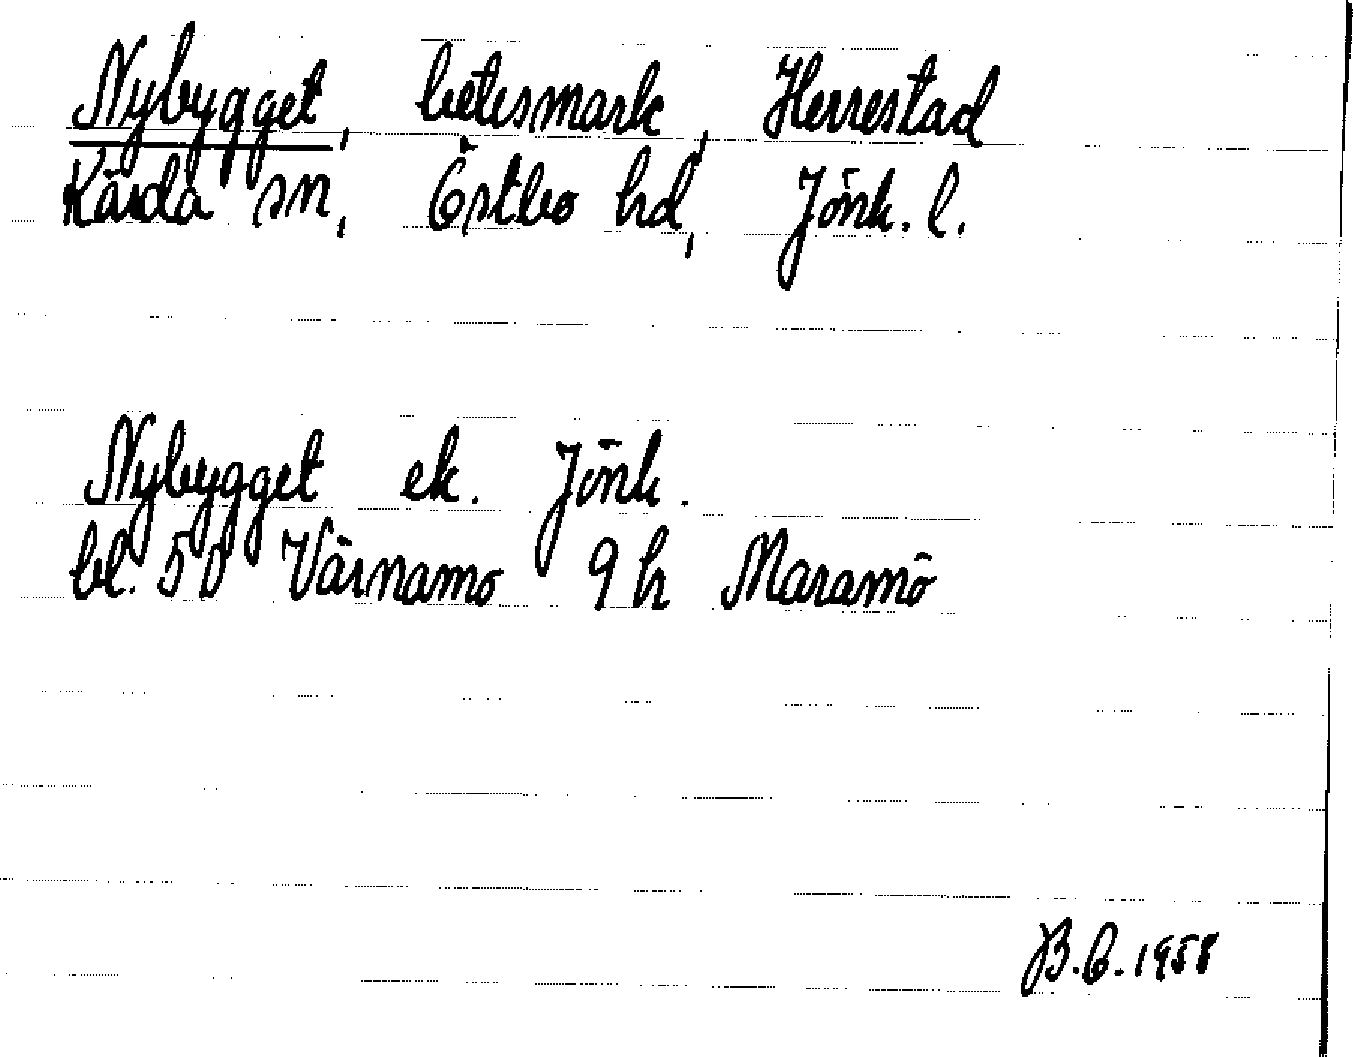 Nybygget, betesmark, Herrestad
Kärda sn, Östbo hd, Jönk. l.
Nybygget ek. Jönk.
bl. 50 Värnamo 9 h Maramö
B.E. 1958